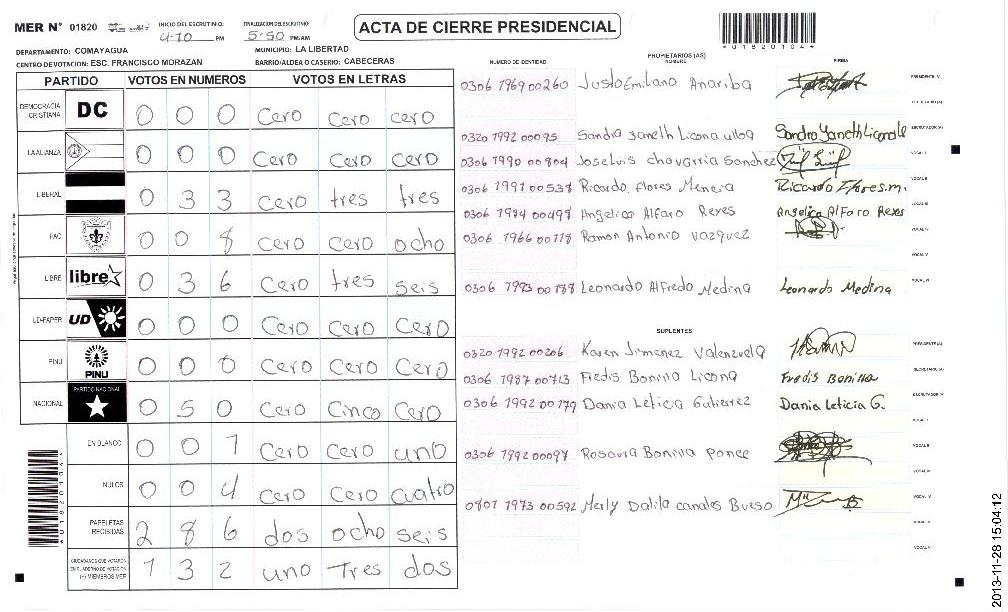 MER N° 01820
INICIO DEL ESCRUTINIO: 4-10 PM
FINALIZACION DEL ESCRUTINIO: 5-50 PM/AM
ACTA DE CIERRE PRESIDENCIAL
*01820104*
DEPARTAMENTO: COMAYAGUA
MUNICIPIO: LA LIBERTAD
CENTRO DE VOTACION: ESC. FRANCISCO MORAZAN
BARRIO/ALDEA O CASERIO: CABECERAS
PARTIDO VOTOS EN NUMEROS VOTOS EN LETRAS
DEMOCRACIA CRISTIANA DC 0 0 0 Cero Cero cero
LA ALIANZA 0 0 0 Cero Cero Cero
LIBERAL 0 3 3 cero tres tres
PAC 0 0 8 Cero Cero ocho
LIBRE libre 0 3 6 Cero tres seis
UD-FAPER UD 0 0 0 Cero Cero Cero
PINU PINU 0 0 0 Cero Cero Cero
NACIONAL PARTIDO NACIONAL 0 5 0 Cero Cinco Cero
EN BLANCO 0 0 1 Cero Cero uno
NULOS 0 0 4 Cero Cero cuatro
PAPELETAS RECIBIDAS 2 8 6 dos ocho seis
CIUDADANOS QUE VOTARON EN CUADERNO DE VOTACION (+) MIEMBROS MER 1 3 2 uno Tres dos
*01820104*
NUMERO DE IDENTIDAD
PROPIETARIOS (AS)
NOMBRE
FIRMA
0306 1969 00260 Justo Emiliano Anariba PRESIDENTE(A)
SECRETARIO (A)
0320 1992 00095 Sandra Janeth Licona ulloa Sandra Yaneth Licona U ESCRUTADOR (A)
0306 1990 00804 Joseluis chavarria Sanchez VOCAL I
0306 1991 00538 Ricardo Flores Meneia Ricardo Flores.m. VOCAL II
0306 1994 00497 Angelica Alfaro Reyes Angelica Alfaro Reyes VOCAL III
0306 1966 00118 Ramon Antonio vazquez VOCAL IV
VOCAL V
0306 1993 00188 Leonardo Alfredo Medina Leonardo Medina VOCAL VI
SUPLENTES
0320 1992 00206 Karen Jimenez Valenzuela PRESIDENTE(A)
0306 1987 00713 Fredis Bonilla Licona Fredis Bonilla SECRETARIO (A)
0306 1992 00179 Dania Leticia Gutierrez Dania Leticia G. ESCRUTADOR (A)
VOCAL I
0306 1992 00097 Rosaura Bonilla Ponce VOCAL II
VOCAL III
0801 1973 00592 Merly Dalila canales Bueso VOCAL IV
VOCAL V
VOCAL VI
2013-11-28 15:04:12